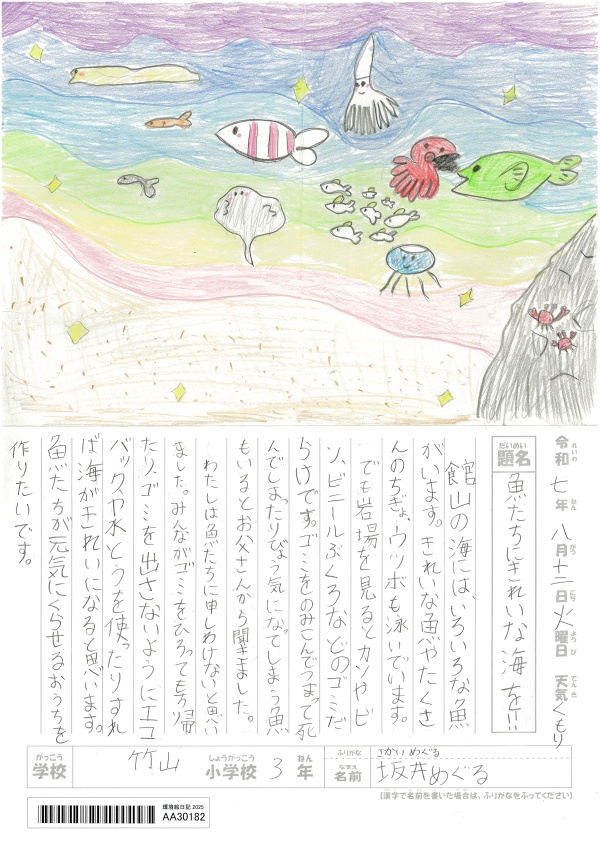 令和七年八月十二日火曜日 天気くもり
れいわ ねん がつ にち ようび てんき
だいめい
題名 魚たちにきれいな海を!!
館山の海にはいろいろな魚
がいます。きれいな魚やたくさ
んのちぎょ、ウツボも泳いでいます。
でも岩場を見るとカンやビ
ン、ビニールぶくろなどのゴミだ
らけです。ゴミをのみこんでつまって死
んでしまったりびょう気になってしまう魚
もいるとお父さんから聞きました。
わたしは魚たちに申しわけないと思い
ました。みんながゴミをひろってもち帰
たり、ゴミを出さないようにエコ
バックや水とうを使ったりすれ
ば海がきれいになると思います。
魚たちが元気にくらせるおうちを
作りたいです。
がっこう しょうがっこう ねん ふりがな さかいめぐる
学校 竹山小学校 3年 なまえ 名前 坂井めぐる
(漢字で名前を書いた場合は、ふりがなをふってください)
環境絵日記 2025
AA30182